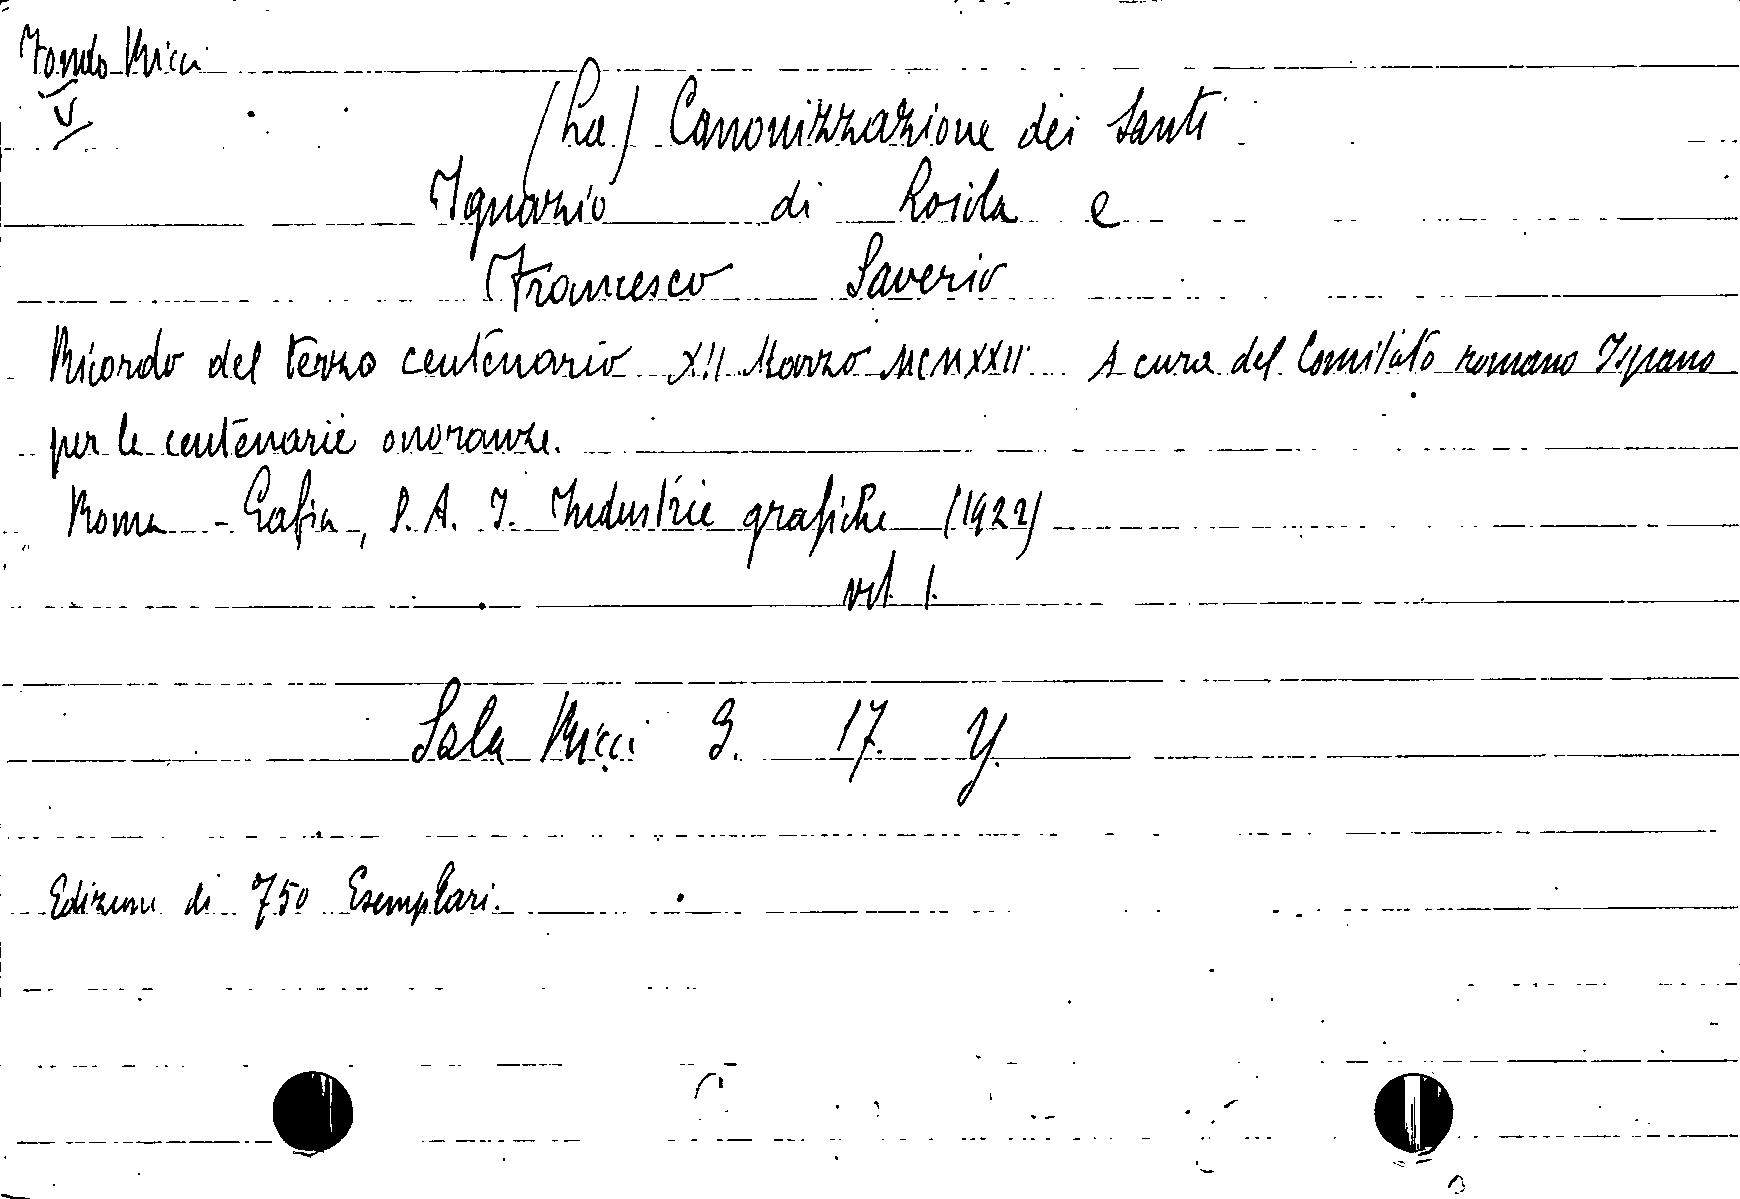 Fondo Ricci
V
(La) Canonizzazione dei Santi
Ignazio di Loiola e
Francesco Saverio
Ricordo del terzo centenario XII Marzo MCMXXII. A cura del Comitato romano Ispano
per le centenarie onoranze.
Roma - Grafia, S. A. I. Industrie grafiche (1922)
vol. 1.
Sala Ricci 3. 17. Y.
Edizione di 750 Esemplari.